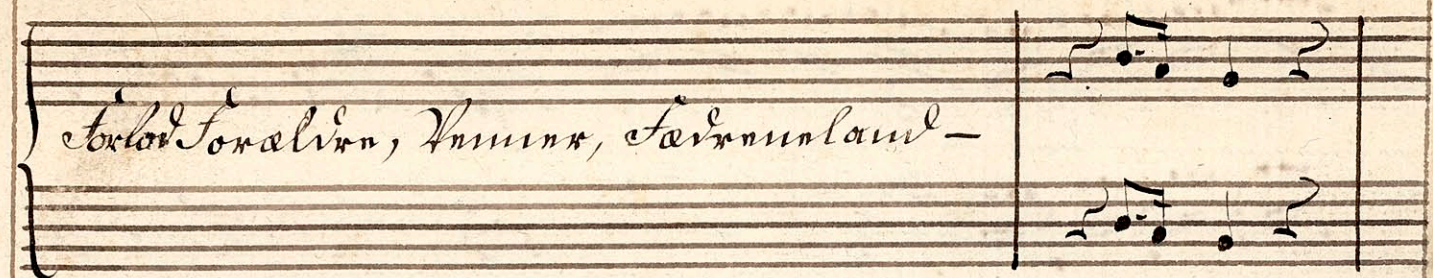 Forlod Forældre, Venner, Fædreneland –